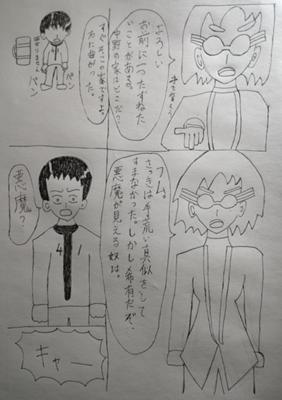 よろしい
お前に一つたずねた
いことがある。
中野の家はどこだ？
すぐそこの家ですよ。
パン
パン
フム。
さっきは手荒い真似をして
すまなかった。しかし希有だぞ、
悪魔が見える奴は。
悪魔？
キャー